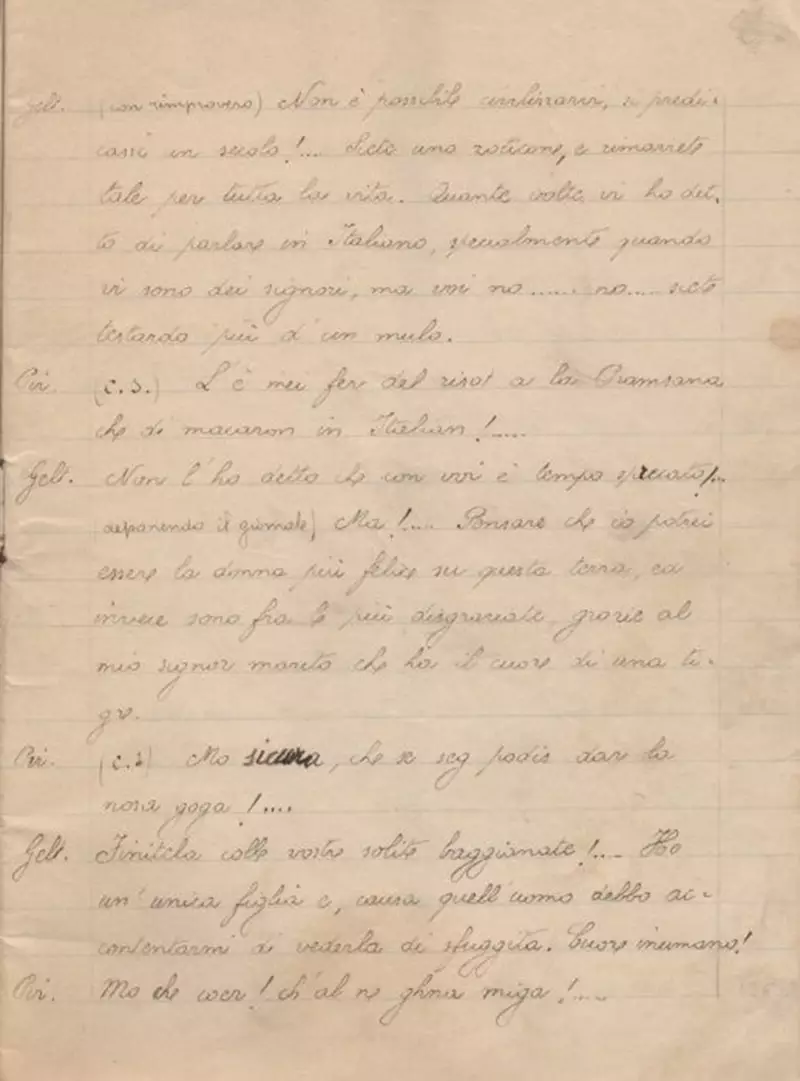 Gelt. (con rimprovero) Non è possibile civilizzarvi, si predi-
cassi in secolo!... Siete uno zoticone, e rimarrete
tale per tutta la vita. Quante volte vi ho det-
to di parlare in Italiano, specialmente quando
vi sono dei signori, ma voi no....... no..... siete
testardo più d'un mulo.
Pir. (c.s.) L'è mei fer del risot a la Pramsana
che di macaron in Italian!.....
Gelt. Non l'ho detto che con voi è tempo sprecato!...
deponendo il giornale) Ma!.... Pensare che io potrei
essere la donna più felice su questa terra, ed
invece sono fra le più disgraziate, grazie al
mio signor marito che ha il cuore di una ti-
gre.
Pir. (c.s) Mo sicura, che se seg podis dar la
nosa goga!....
Gelt. Finitela colle vostre solite baggianate!.... Ho
un'unica figlia e, causa quell'uomo debbo ac-
contentarmi di vederla di sfuggita. Cuore inumano!
Pir. Mo che coer! ch'al ne ghna miga!.....